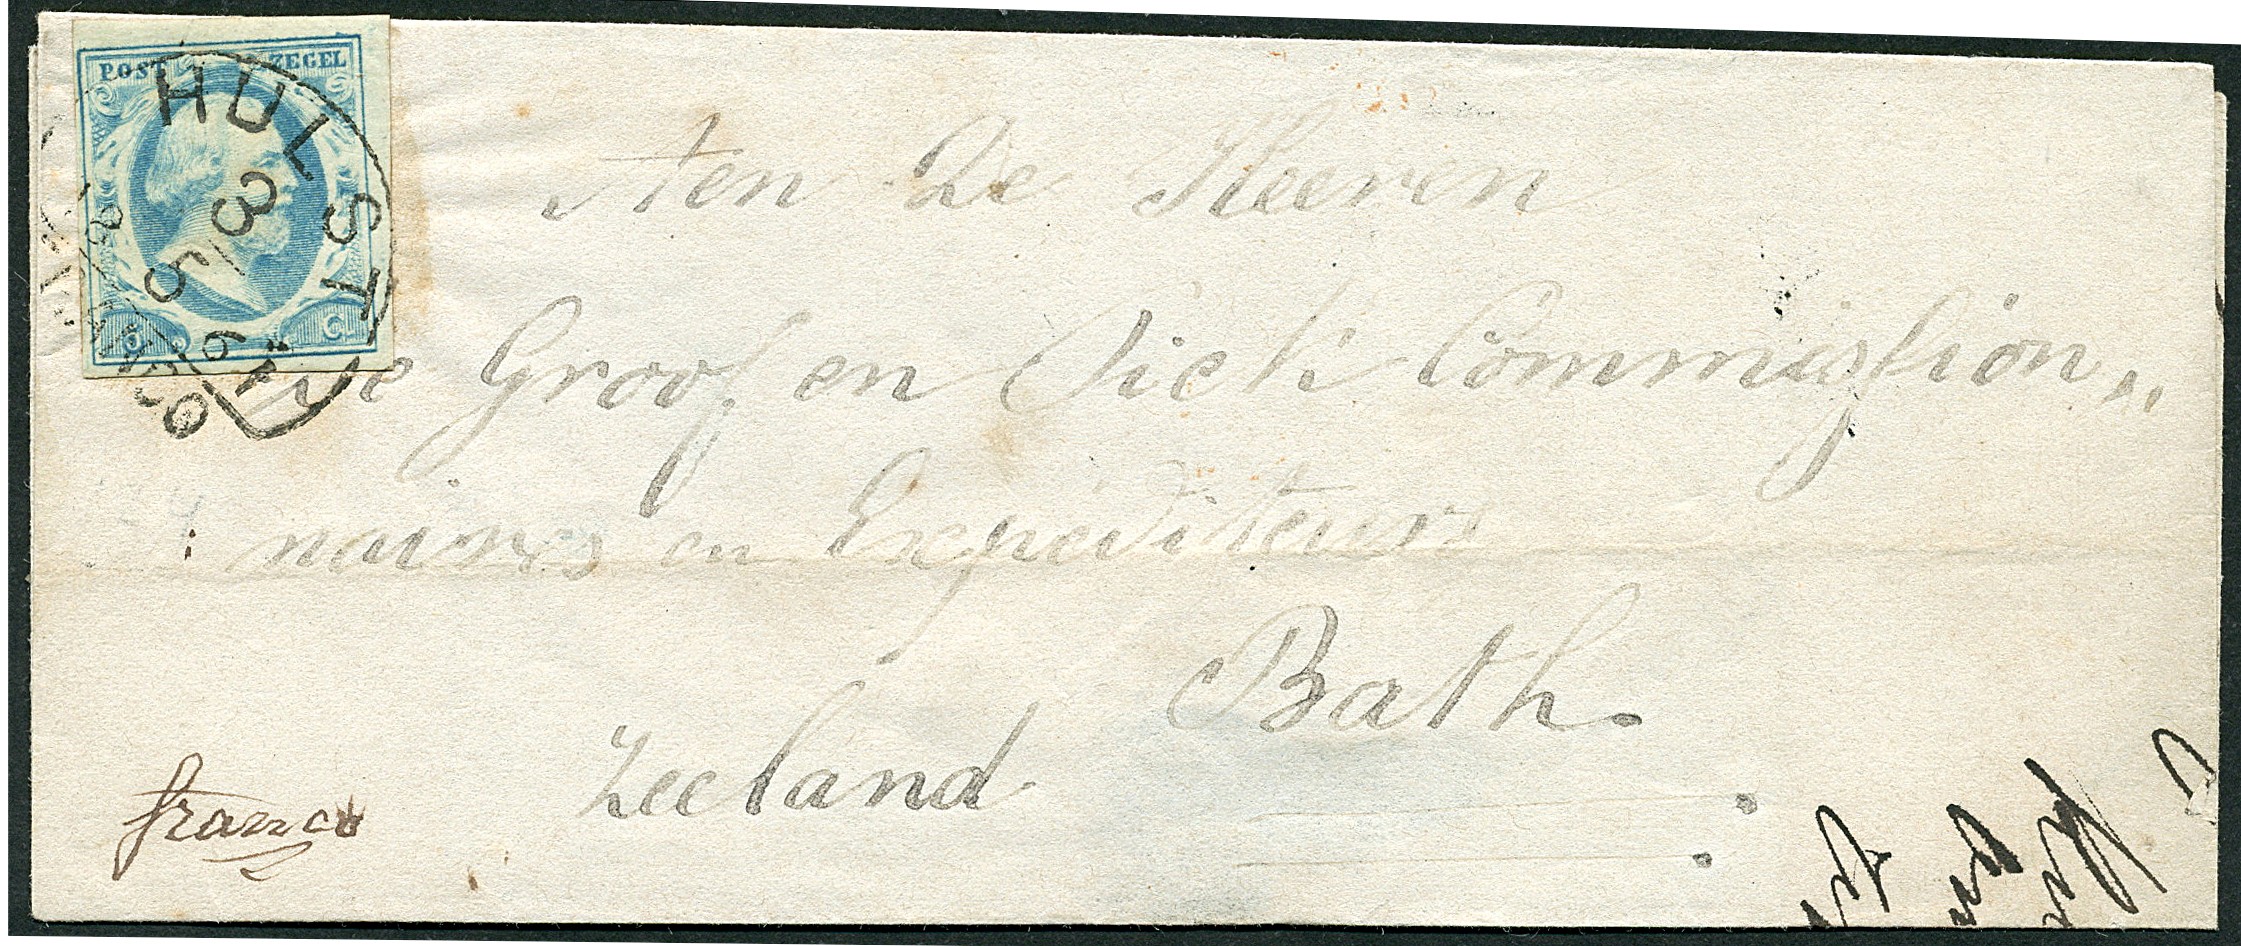 POST ZEGEL
5 C.
HULST
3/5
FRANCO
Aen De Heeren
De Groof en Commission„
naires en Expediteurs
Bath.
Zeeland
franco